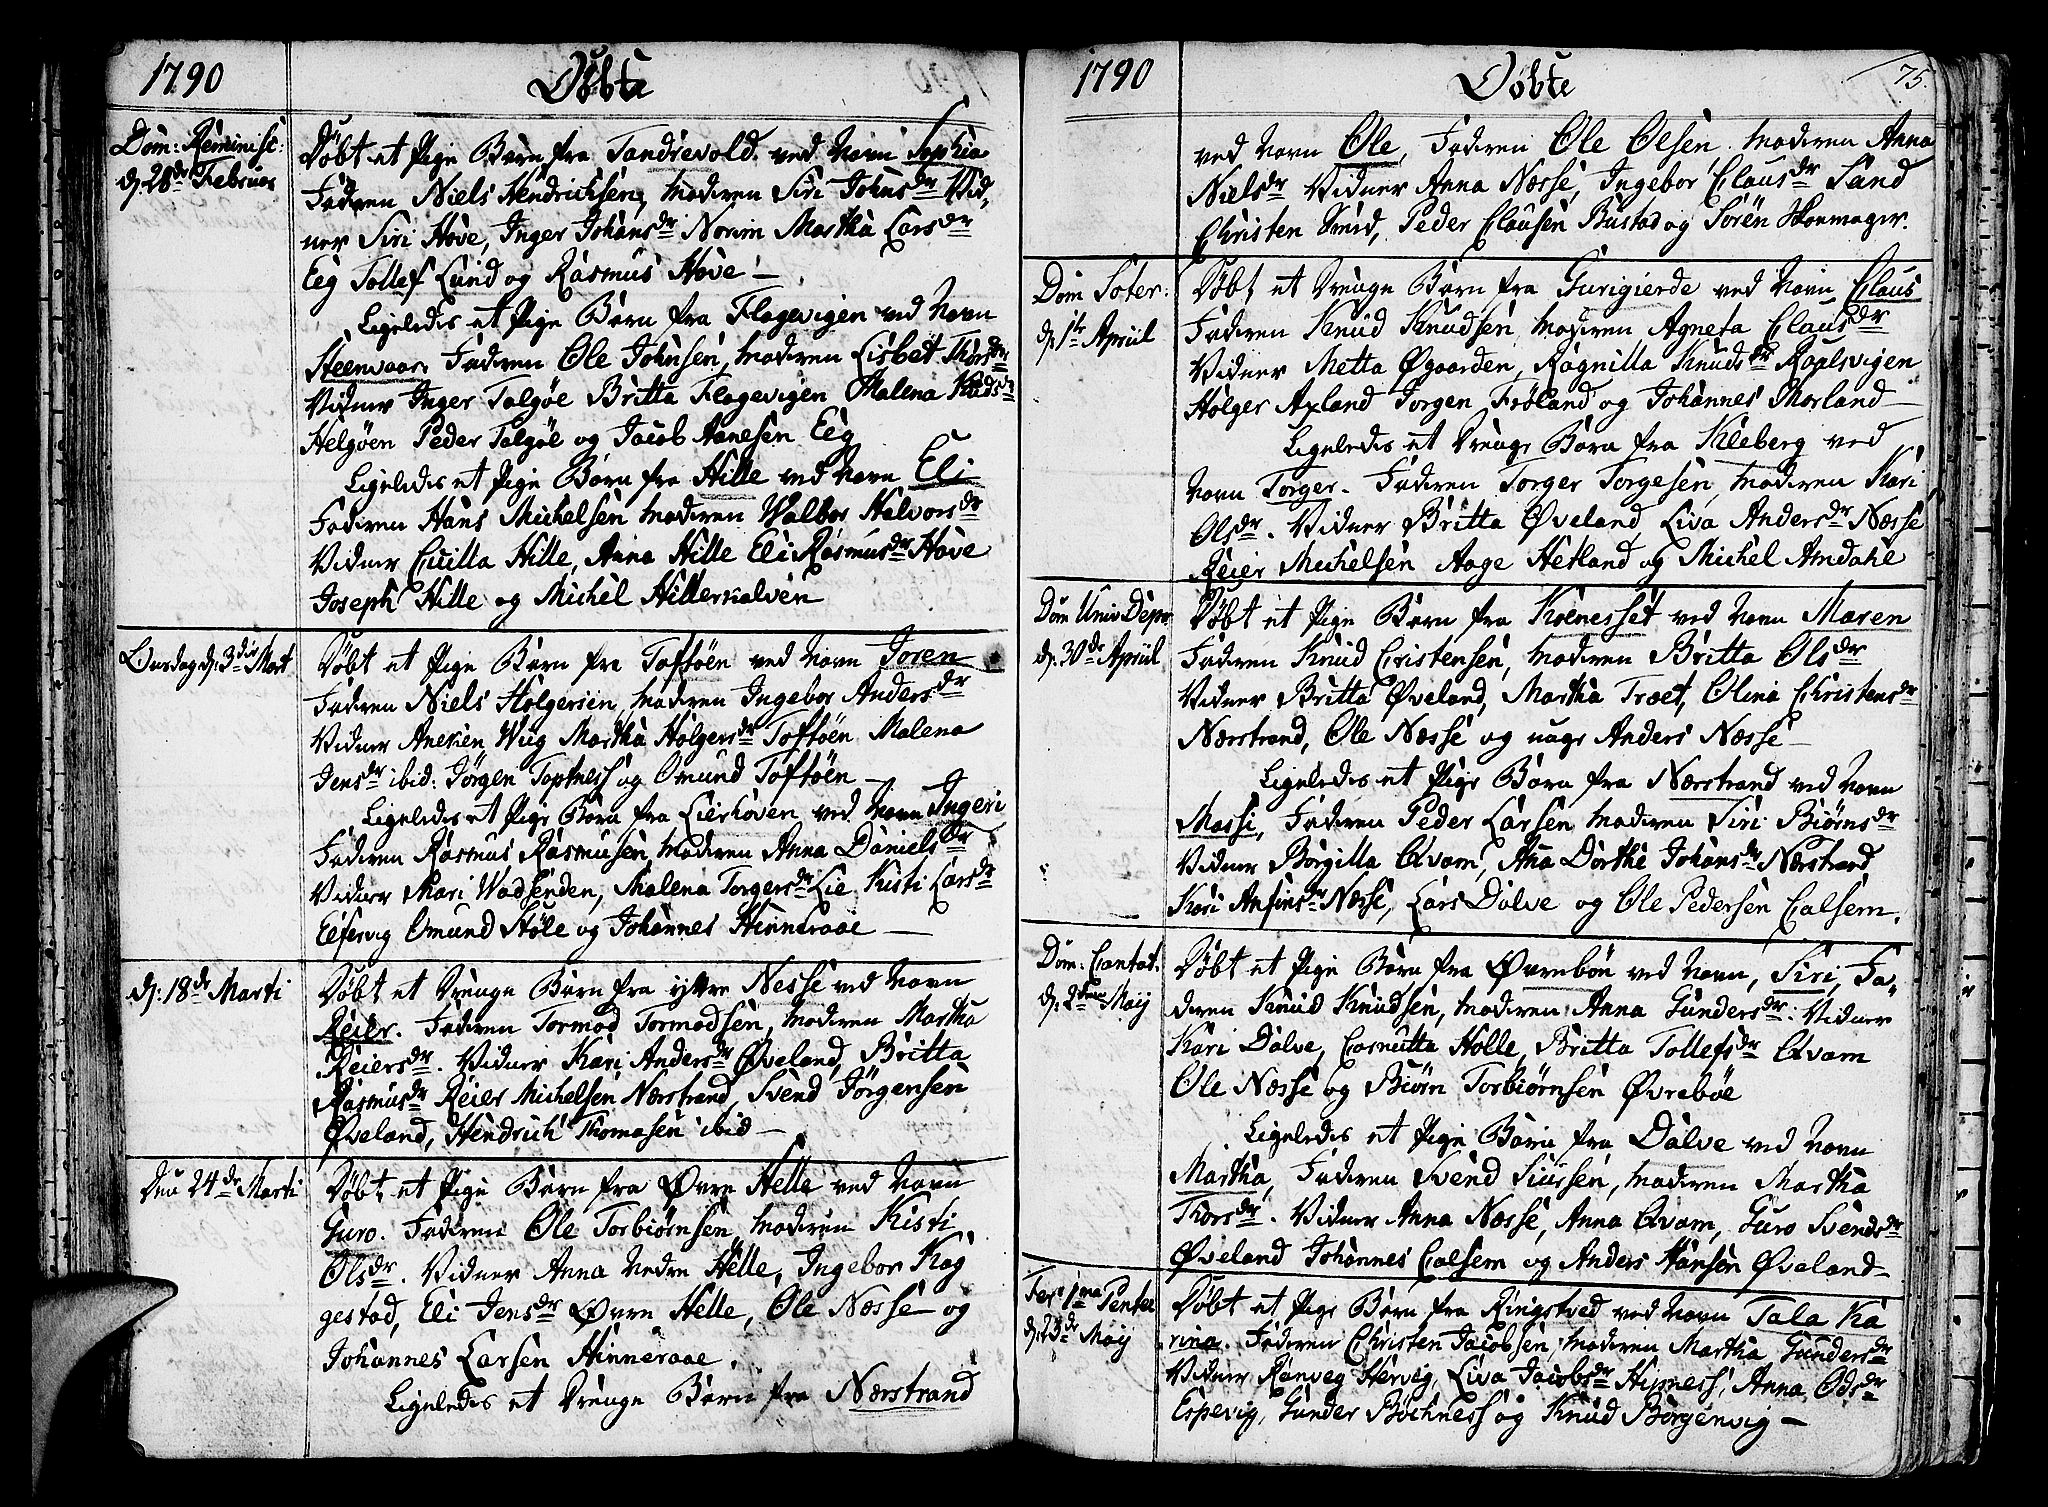 1790
Døbte
Dom: Reminisc:
d. 28de Februar
Døbt et Pige Barn fra Tandrevold ved Navn Sophia
Faderen Niels Hendrichsen, Moderen Siri Johnsdr Vid-
ner Siri Hove, Inger Johansdr Norim Martha Larsdr
Eeg Tollef Lund og Rasmus Hove –
Ligeledes et Pige Barn fra Flagevigen ved Navn
Steenvaar. Faderen Ole Johnsen, Moderen Lisbet Thorsdr
Vidner Inger Talgøe Britta Flagevigen Malena
Helgøen Peder Talgøe og Jacob Aanesen Eeg
Ligeledes et Pige Barn fra Hille ved Navn Eli
Faderen Hans Michelsen Moderen Walbor Halvorsdr
Vidner Hille, Anna Hille Eli Rasmusdr Hove
Joseph Hille og Michel Hillerkalven
Onsdag d. 3die Mart
Døbt et Pige Barn fra Toftøen ved Navn Joren
Faderen Niels Holgersen, Moderen Ingebor Andersdr
Vidner Aneken Wiig Martha Holgersdr Toftøen Malena
Jensdr ibid: Jørgen Toptness og Omund Toftøen –
Ligeledes et Pige Barn fra Lierhoven ved Navn Ingeri
Faderen Rasmus Rasmusen, Moderen Anna Danielsdr
Vidner Mari Wadsenden, Malena Torgersdr Lie Kisti Larsdr
Eltervig Omund Støle og Johannes Hinneraae –
d. 18de Marti
Døbt et Drenge Barn fra yttre Nesse ved Navn
Reier. Faderen Tormod Tormodsen, Moderen Martha
Reiersdr. Vidner Kari Andersdr Øveland, Britta
Rasmusdr Reier Michelsen Nærstrand, Svend Jørgensen
Øveland, Hendrich Thomasen ibid –
Den 24de Marti
Døbt et Pige Barn fra Øvre Helle ved Navn
Guro. Faderen Ole Torbiørnsen, Moderen Kisti
Olsdr. Vidner Anna Nedre Helle, Ingebor Kog
gestad, Eli Jensdr Øvre Helle, Ole Næsse og
Johannes Larsen Hinneraae.
Ligeledes et Drenge Barn fra Nærstrand
1790
Døbte
75.
ved Navn Ole, Faderen Ole Olsen. Moderen Anna
Nielsdr Vidner Anna Næsse, Ingebor Clausdr Sand
Christen Smid, Peder Clausen Bustad og Søren Skoemager.
Dom Jater:
d. 1te Apriil
Døbt et Drenge Barn fra Gurigierde ved Navn Claus
Faderen Knud Knudsen, Moderen Agneta Clausdr
Vidner Metta Øgaarden, Ragnilla Knudsdr Roalsvigen
Holger Axland Jorgen Frøland og Johannes Morland –
Ligeledes et Drenge Barn fra Kleberg ved
Navn Torger. Faderen Torger Torgesen, Moderen Kari
Olsdr. Vidner Britta Øveland, Liva Andersdr Næsse
Reier Michelsen Aage Hetland og Michel Amdahl
Dom Univ Depr
d. 30de Apriil
Døbt et Pige Barn fra Koenesset ved Navn Maren
Faderen Knud Cristensen, Moderen Britta Olsdr
Vidner Britta Øveland, Martha Træet, Olina Christensdr
Nærstrand, Ole Næsse og unge Anders Næsse –
Ligeledes et Pige Barn fra Nærstrand ved Navn
Massi, Faderen Peder Larsen Moderen Siri Biørnsdr
Vidner Børgilla Qvam, Ana Dorthe Johansdr Nærstrand
Kari Anfinsdr Næsse, Lars Dalve og Ole Pedersen Calsem.
Dom: Cantat:
d. 2den Maij
Døbt et Pige Barn fra Øvrebøn ved Navn, Siri, Fa-
deren Knud Knudsen, Moderen Anna Gundersdr. Vidner
Kari Dalve, Holle, Britta Tollefsdr Qvam
Ole Næsse og Biørn Torbiørnsen Øvrebøe
Ligeledes et Pige Barn fra Dalve ved Navn
Martha, Faderen Svend Siursen, Moderen Martha
Thorsdr. Vidner Anna Næsse, Anna Qvam, Guro Svendsdr
Øveland Johannes Calsem og Anders Hansen Øveland –
Fer: 1ma Pentec
d. 23de Maij
Døbt et Pige Barn fra Ringstved ved Navn Tala Ka
rina. Faderen Christen Jacobsen, Moderen Martha Gundersdr
Vidner Ranveg Hervig, Liva Jacobsdr Hipness, Anna Odsdr
Espevig, Gunder Bochness og Knud Borgenvig –